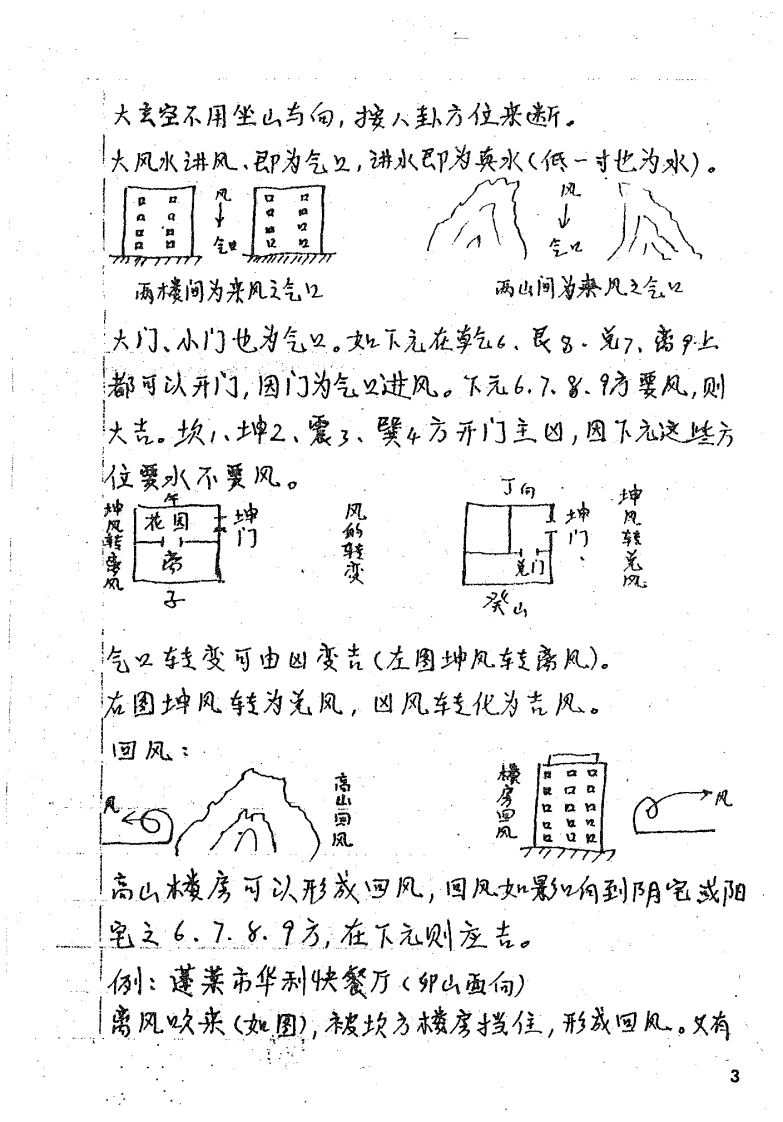 大玄空不用坐山与向,按八卦方位来断。
大风水进风、即为气口,进水即为真水(低一寸也为水)。
风
气口
风
气口
两楼间为来风之气口
两山间为来风之气口
大门、小门也为气口。如下元在乾6、艮8、兑7、离9上
都可以开门,因门为气口进风。下元6.7.8.9方要风,则
大吉。坎1、坤2、震3、巽4方开门主凶,因下元这些方
位要水不要风。
坤风转离风
午
花园
离
坤门
子
风的转变
丁向
坤门
兑门
癸山
坤风转兑风
气口转变可由凶变吉(左图坤风转离风)。
右图坤风转为兑风,凶风转化为吉风。
回风:
风
高山回风
楼房回风
风
高山楼房可以形成回风,回风如影响到阴宅或阳
宅之6、7.8.9方,在下元则应吉。
例:蓬莱市华利快餐厅(卯山酉向)
离风吹来(如图),被坎方楼房挡住,形成回风。又有
3